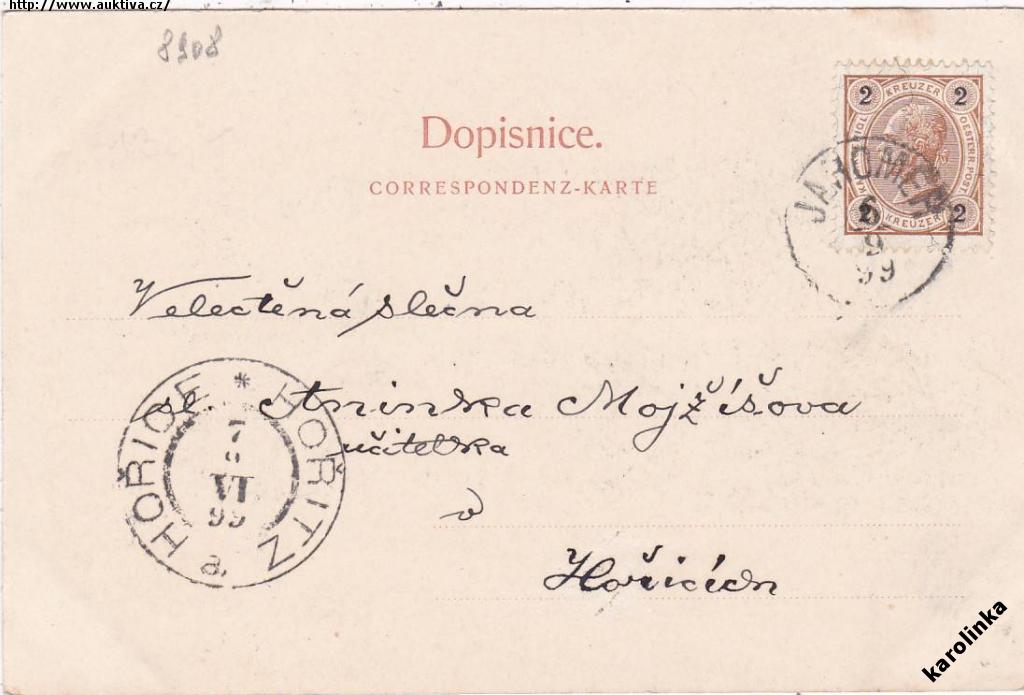 http://www.auktiva.cz/
8908
Dopisnice.
CORRESPONDENZ-KARTE
2 KREUZER 2
OESTERR. POST
2 KREUZER 2
JAROMĚŘ
6
9
99
Velectěná slečna
sl. Aninka Mojžíšova
učitelka
v
Hořicích
HOŘICE * HOŘITZ
7
8
VI
99
a
karolinka